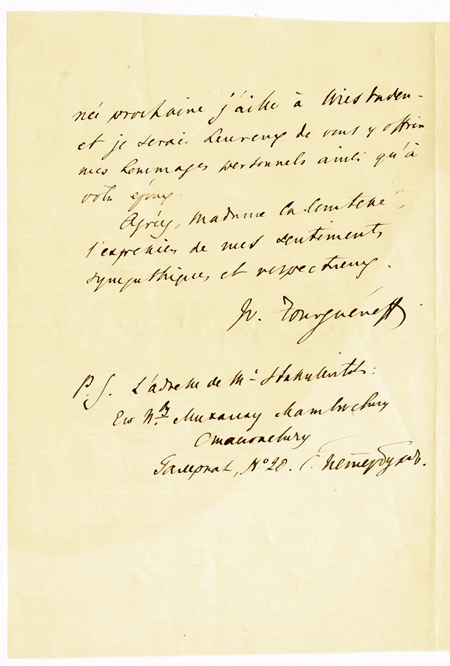 née prochaine j'aille à Wiesbaden -
et je serai heureux de vous y offrir
mes hommages personnels ainsi qu'à
votre époux.
Agréez, Madame la Comtesse,
l'expression de mes sentiments
sympathiques et respectueux.
Iv. Tourguéneff
P. S. L'adresse de Mr Stassulévitch:
Его Михаилу Матвеевичу
Стасюлевичу
Галерная, № 20. С. Петербургъ.